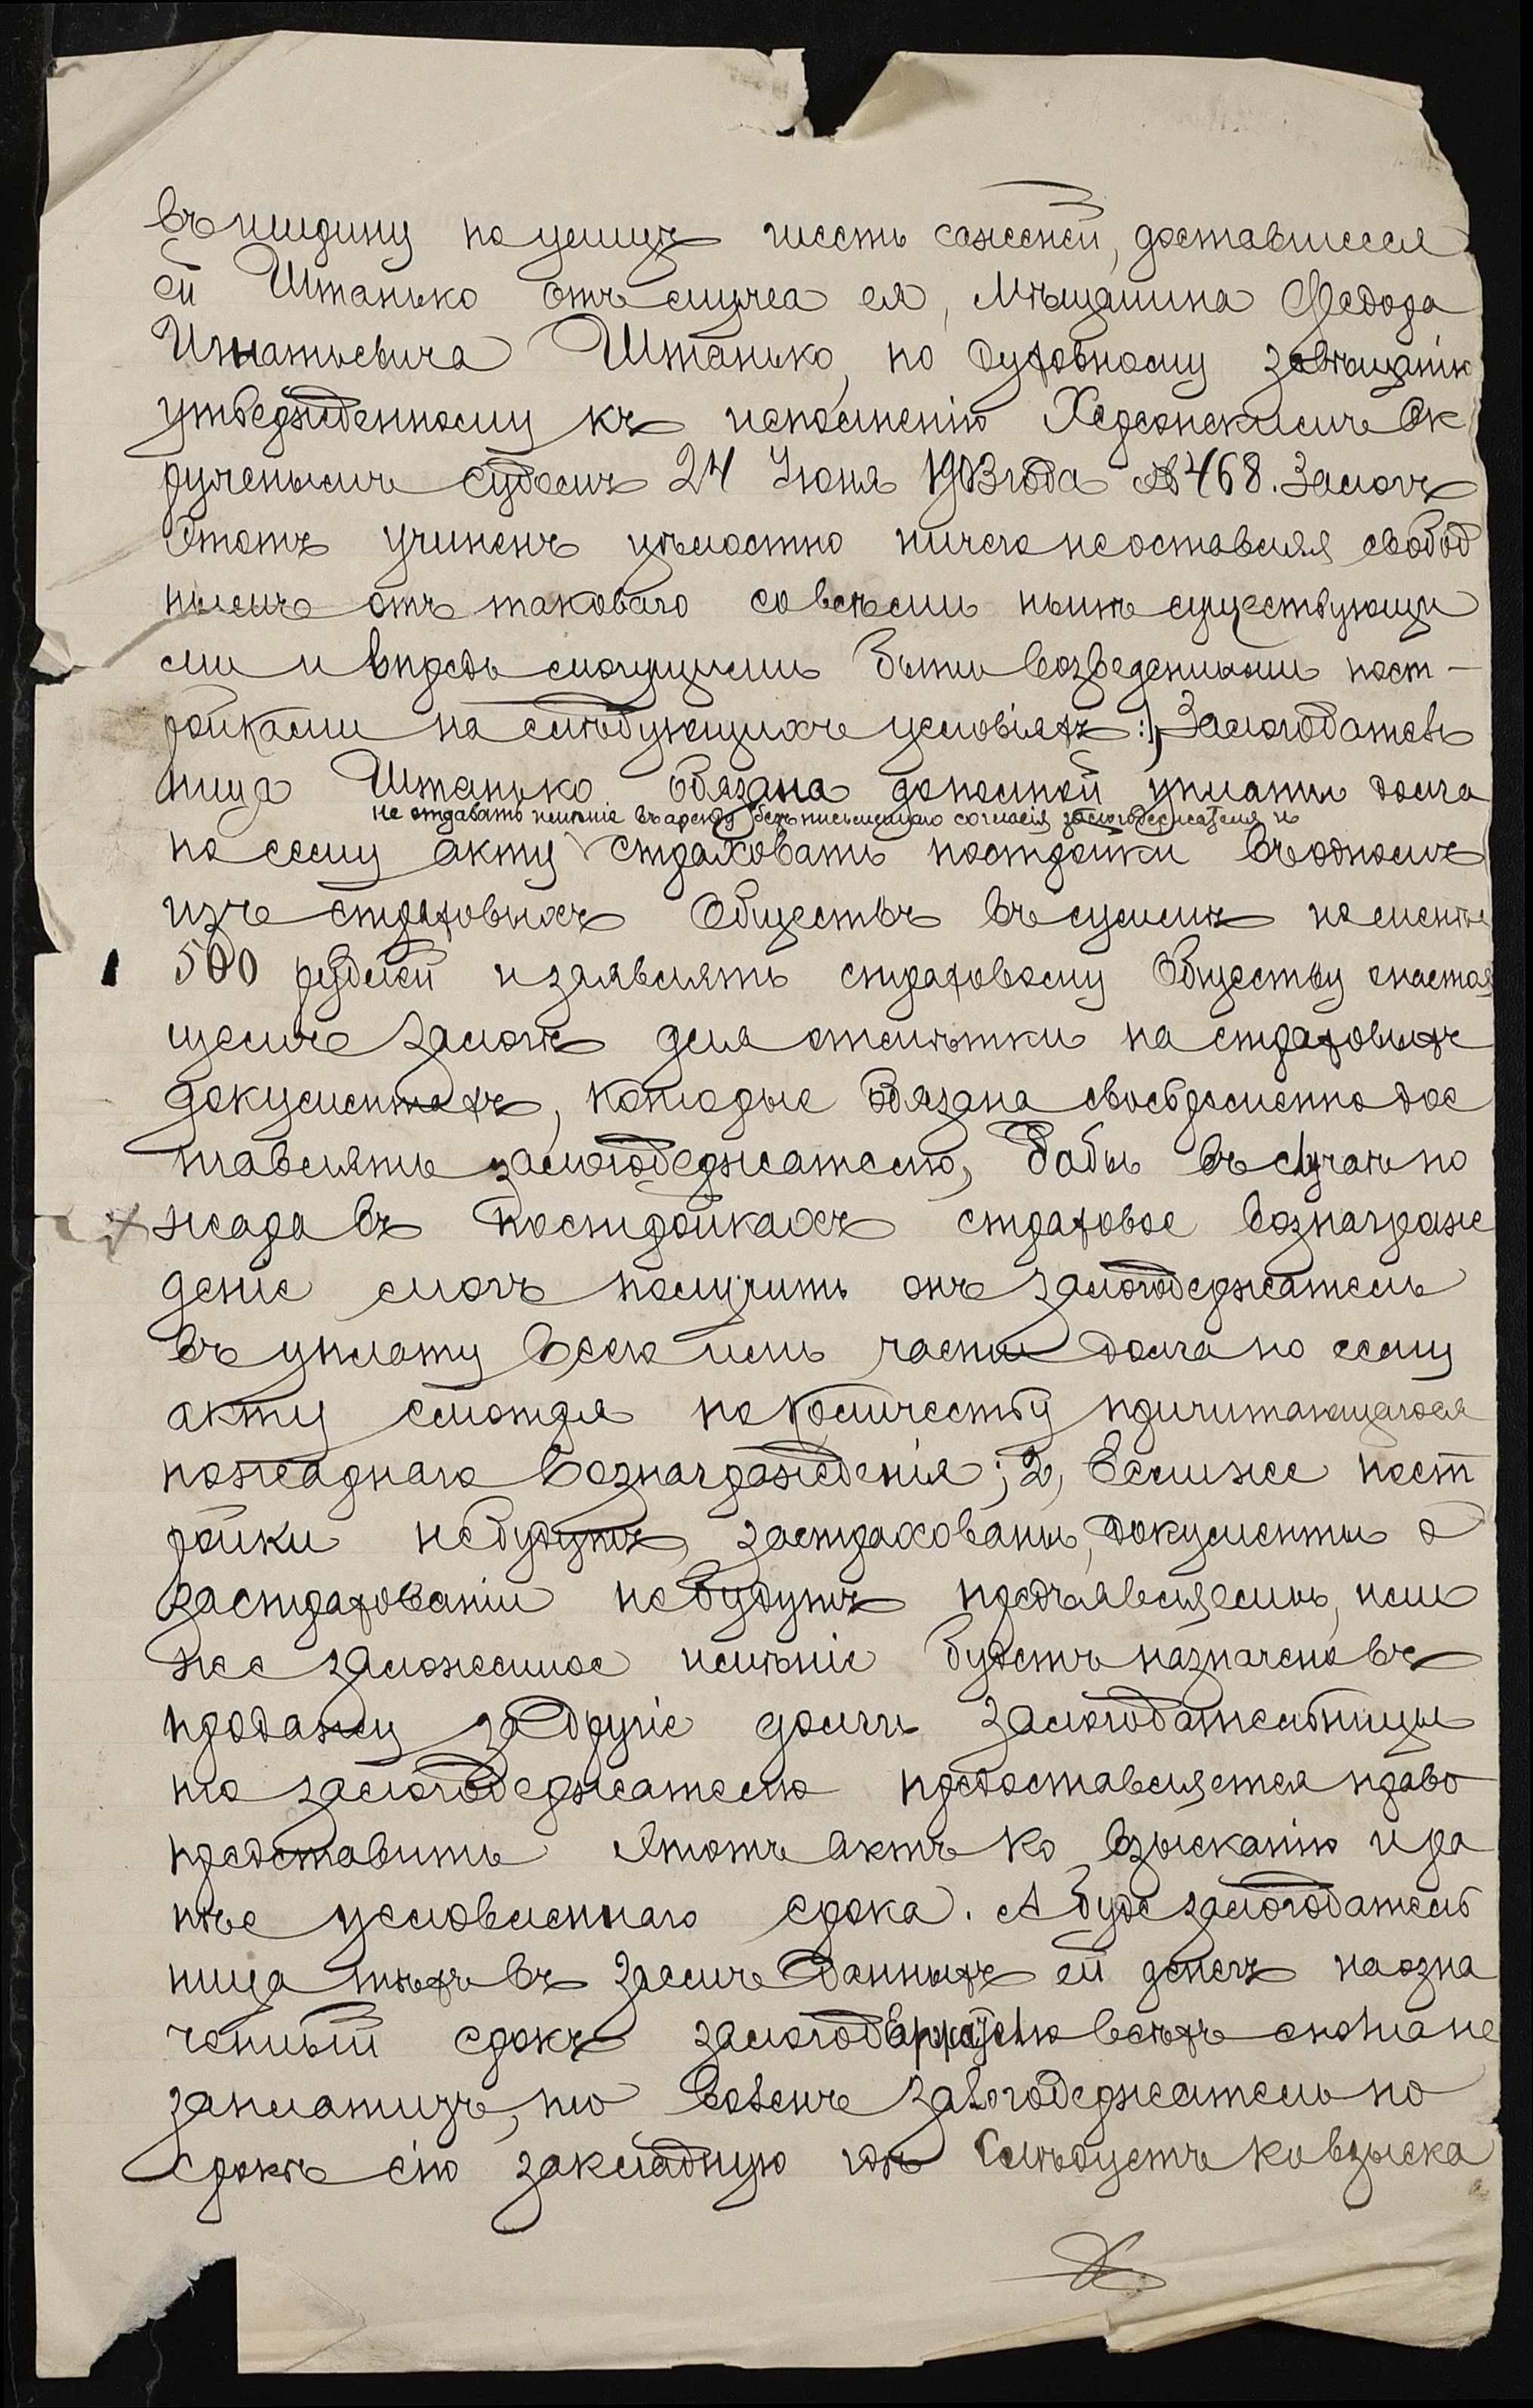 въ ширину по улицѣ шесть саженей, доставшееся
ей Штанько отъ мужа ея, Мѣщанина Федора
Игнатьевича Штанько, по духовному завѣщанію
утвержденному къ исполненію Херсонскимъ Ок
ружнымъ Судомъ 24 Іюня 1903 года № 468. Залогъ
этотъ учиненъ цѣлостно ничего не оставляя свобод
нымъ отъ таковаго со всѣми нынѣ существующи
ми и впредь могущими быть возведенными пост-
ройками на слѣдующихъ условіяхъ: 1, Залогодатель
ница Штанько обязана до полной уплаты долга
не отдавать имѣніе въ аренду безъ письменнаго согласія залогодержателя и
по сему акту страховать постройки въ одномъ
изъ страховыхъ Обществъ въ суммѣ не менѣе
500 рублей и заявлять страховому Обществу о настоя
щемъ залогѣ для отмѣтки на страховыхъ
документахъ, которые обязана своевременно дос
тавлять залогодержателю, дабы въ случаѣ по
жара въ постройкахъ страховое вознаграж
деніе могъ получить онъ залогодержатель
въ уплату всего или части долга по сему
акту смотря по количеству причитающагося
пожарнаго вознагражденія; 2, Если же пост
ройки не будутъ застрахованы, документы о
застрахованіи не будутъ предъявляемы, или
же заложенное имѣніе будетъ назначено въ
продажу за другіе долги залогодательницы
то залогодержателю предоставляется право
представить этотъ актъ ко взысканію и ра
нѣе условленнаго срока. А буде залогодатель
ница тѣхъ въ заемъ данныхъ ей денегъ на озна
ченный срокъ залогодержателю всѣхъ сполна не
заплатитъ, то воленъ залогодержатель по
срокѣ сію закладную гдѣ слѣдуетъ ко взыска